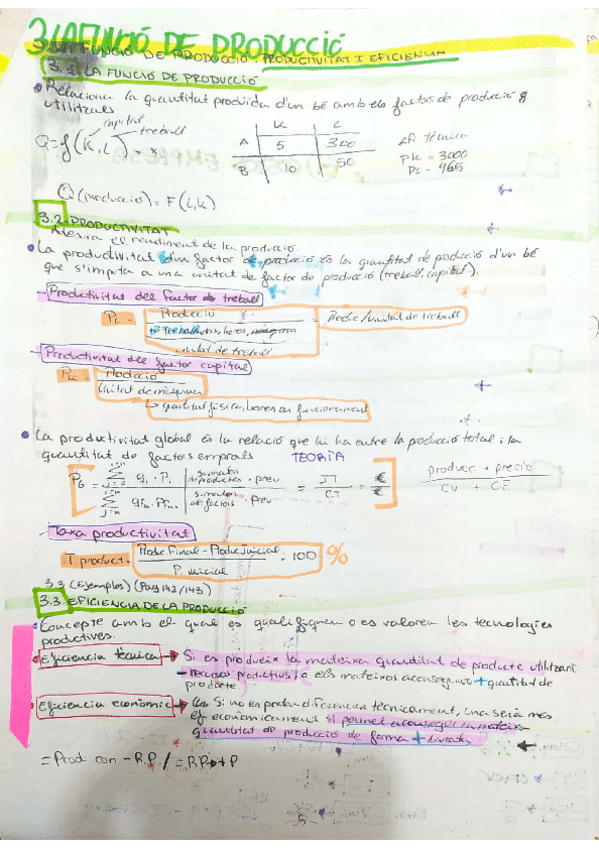 3. LA FUNCIÓ DE PRODUCCIÓ
3. LA FUNCIÓ DE PRODUCCIÓ. PRODUCTIVITAT I EFICIENCIA
3.1 LA FUNCIÓ DE PRODUCCIÓ
Relaciona la quantitat produida d'un bé amb els factors de producció
utilitzats
capital
treball
Q=f(K,L) = x
K L
A 5 300
B 10 50
Efi tècnica
PK = 3000
PL = 965
Q (producció) = F(L,K)
3.2. PRODUCTIVITAT
Mesura el rendiment de la producció.
La productivitat d'un factor de producció és la quantitat de producció d'un bé
que s'imputa a una unitat de factor de producció (treball, capital).
Productivitat del factor de treball
PL = Producció
Treballadors, hores,
unitat de treball
= Produc/unitat de treball
Productivitat del factor capital
PK = Producció
Unitat de màquina
quantitat física, hores en funcionament
La productivitat global és la relació que hi ha entre la producció total i la
quantitat de factors emprats
TEORÍA
PG = qi · Pi sumatori de productes · preu
sumatori de factors · Preu
= IT = €
CT €
produc + precio
CV + CF
Taxa productivitat
T product. = Produc Final - Produc inicial · 100 %
P. inicial
3.3 (Ejemplos) (Pag 142/143)
3.3. EFICIENCIA DE LA PRODUCCIÓ
Concepte amb el qual es qualifiquen o es valoren les tecnologies
productives.
Eficiencia tècnica → Si es produeix la mateixa quantitat de producte utilitzant
- recursos productius / o els mateixos aconseguint + quantitat de
producte.
Eficiencia econòmica → Si no es poden diferenciar tècnicament, una serà més
ef econòmicament si permet aconseguir la mateixa
quantitat de producció de forma +
= Prod con - R.P. / = R.P → + P